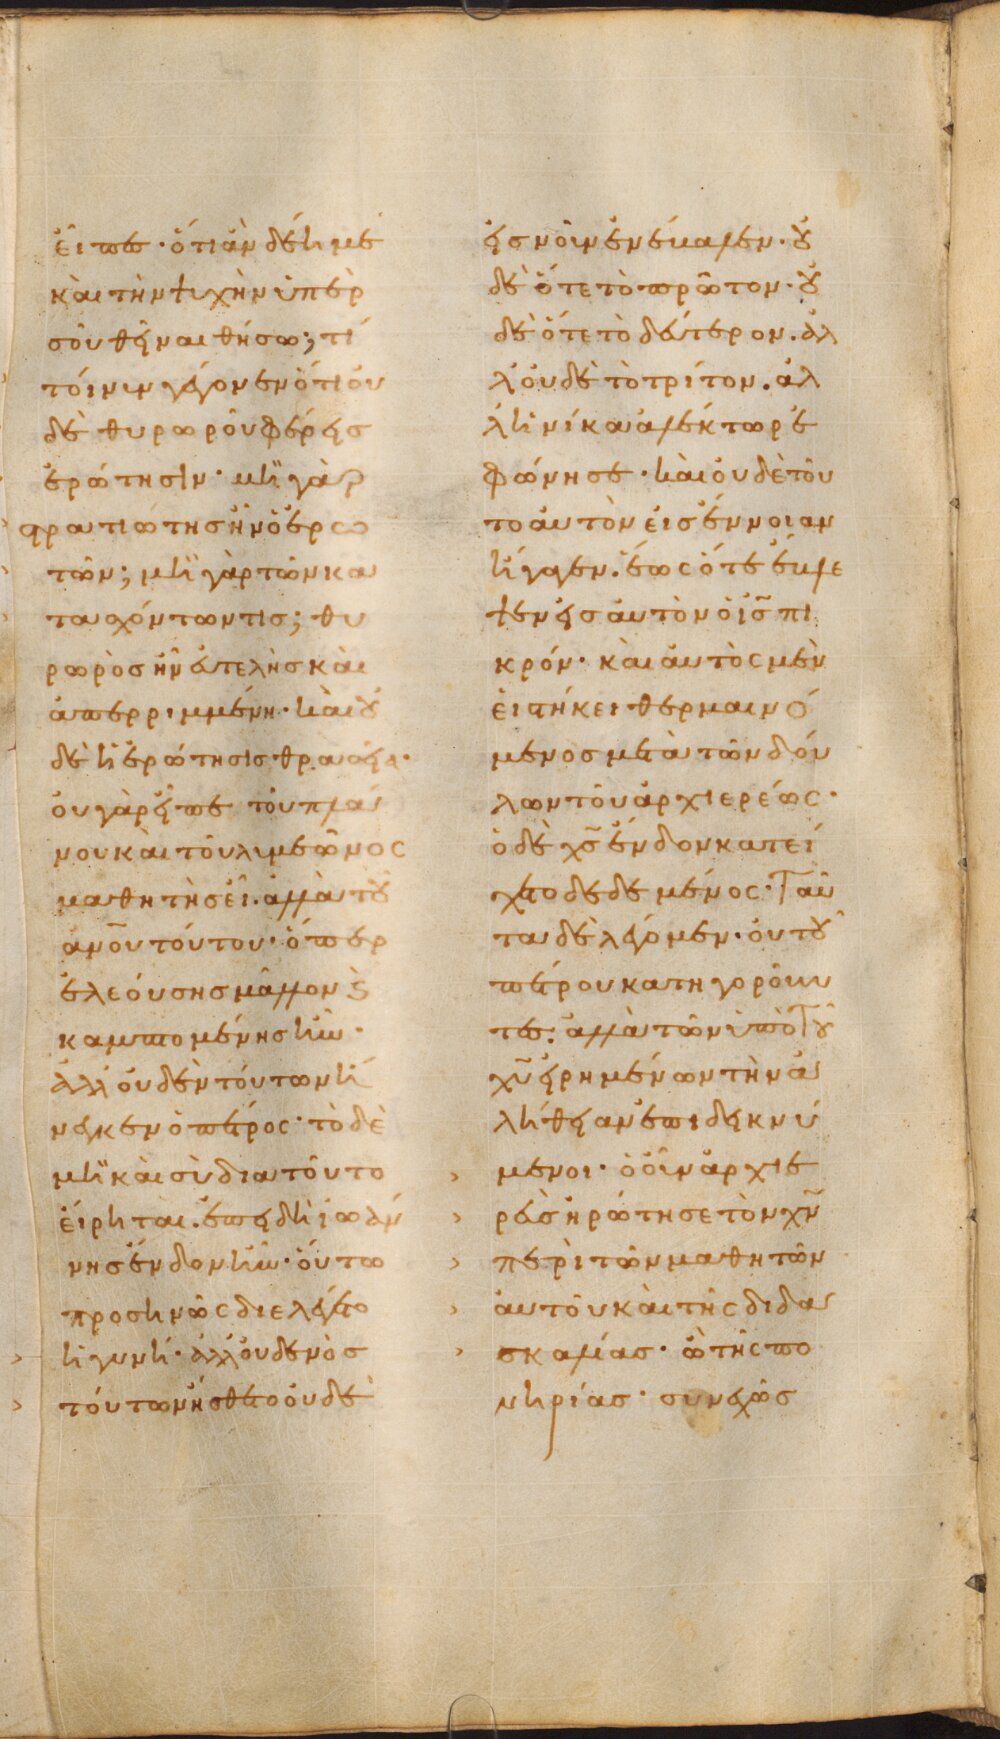 εἶπε· ὅτι ἂν δέη με
καὶ τὴν ψυχὴν ὑπὲρ
σοῦ θεῖναι θήσω; τί
τοίνυν γέγονεν ὅτι οὐ
δὲ θυρωροῦ φέρεις
ἐρώτησιν· μὴ γὰρ
στρατιώτης ἦν ὁ ἐρω
τῶν; μὴ γὰρ τῶν κα
τασχόντων τις; θυ
ρωρὸς ἦν εὐτελὴς καὶ
ἀπερριμμένη· καὶ οὐ
δὲ ἡ ἐρώτησις θρασεῖα·
οὐ γὰρ εἶπε τοῦ πλά
νου καὶ τοῦ λυμεῶνος
μαθητὴς εἶ. ἀλλὰ τοῦ
ἀνου τούτου· ὅπερ
ἐλεούσης μᾶλλον ϗ
καμπτομένης ἦν·
ἀλλ' οὐδὲν τούτων ἤ
νεγκεν ὁ πέτρος· τὸ δὲ
μὴ καὶ σὺ διὰ τοῦτο
εἴρηται. ἐπειδὴ ἰωάν
νης ἔνδον ἦν· οὕτω
προσηνῶς διελέγετο
ἡ γυνή· ἀλλ' οὐδενὸς
τούτων ἤσθετο οὐδὲ
εἰς νοῦν ἐνέβαλεν· οὐ
δὲ ὅτε τὸ πρῶτον· οὐ
δὲ ὅτε τὸ δεύτερον. ἀλ
λ' οὐδὲ τὸ τρίτον. ἀλ
λ' ἡνίκα ἀλέκτωρ ἐ
φώνησε· καὶ οὐδὲ τοῦ
το αὐτὸν εἰς ἔννοιαν
ἤγαγεν. ἕως ὅτε ἔβλε
ψεν εἰς αὐτὸν ὁ ις πι
κρόν· καὶ αὐτὸς μὲν
εἱστήκει θερμαινό
μενος μετὰ τῶν δού
λων τοῦ ἀρχιερέως·
ὁ δὲ χς ἔνδον κατεί
χετο δεδεμένος· Ταῦ
τα δὲ λέγομεν. οὐ τοῦ
πέτρου κατηγοροῦν
τες. ἀλλὰ τῶν ὑπὸ τοῦ
χυ εἰρημένων τὴν ἀ
λήθειαν ἐπιδεικνύ
μενοι· ὁ οὖν ἀρχιε
ρεὺς ἠρώτησε τὸν χν
περὶ τῶν μαθητῶν
αὐτοῦ καὶ τῆς διδα
σκαλίας· ὢ τῆς πο
νηρίας· συνεχῶς